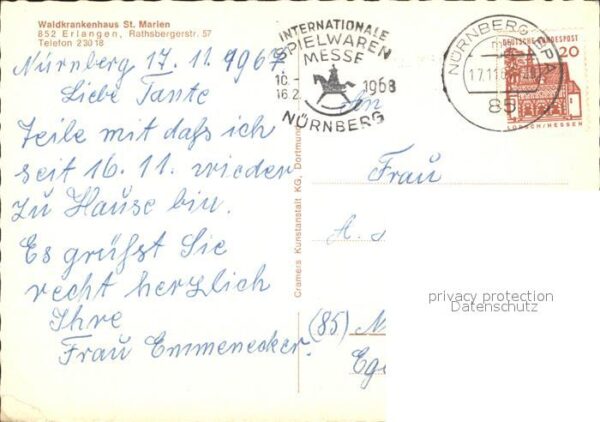 Waldkrankenhaus St. Marien
852 Erlangen, Rathsbergerstr. 57
Telefon 23018
Nürnberg 17.11.1967
Liebe Tante
Teile mit daß ich
seit 16.11. wieder
zu Hause bin.
Es grüßt Sie
recht herzlich
Ihre
Frau Emmenecker.
Cramers Kunstanstalt KG, Dortmund
INTERNATIONALE
SPIELWAREN
MESSE
10.-
16.2. 1968
NÜRNBERG
NÜRNBERG
17.11.6
85
DEUTSCHE BUNDESPOST
20
LORSCH/HESSEN
An
Frau
A.
(85) N
Ege
privacy protection
Datenschutz